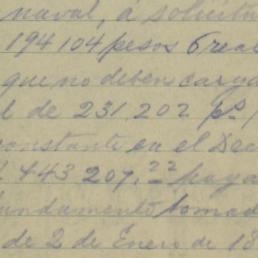 naval, a solicitu
194104 pesos 6 real
que no deben carga
l de 231,202 ps
constante en el Dec
443 207.22 paga
fundamento tomad
de 2 de Enero de 18